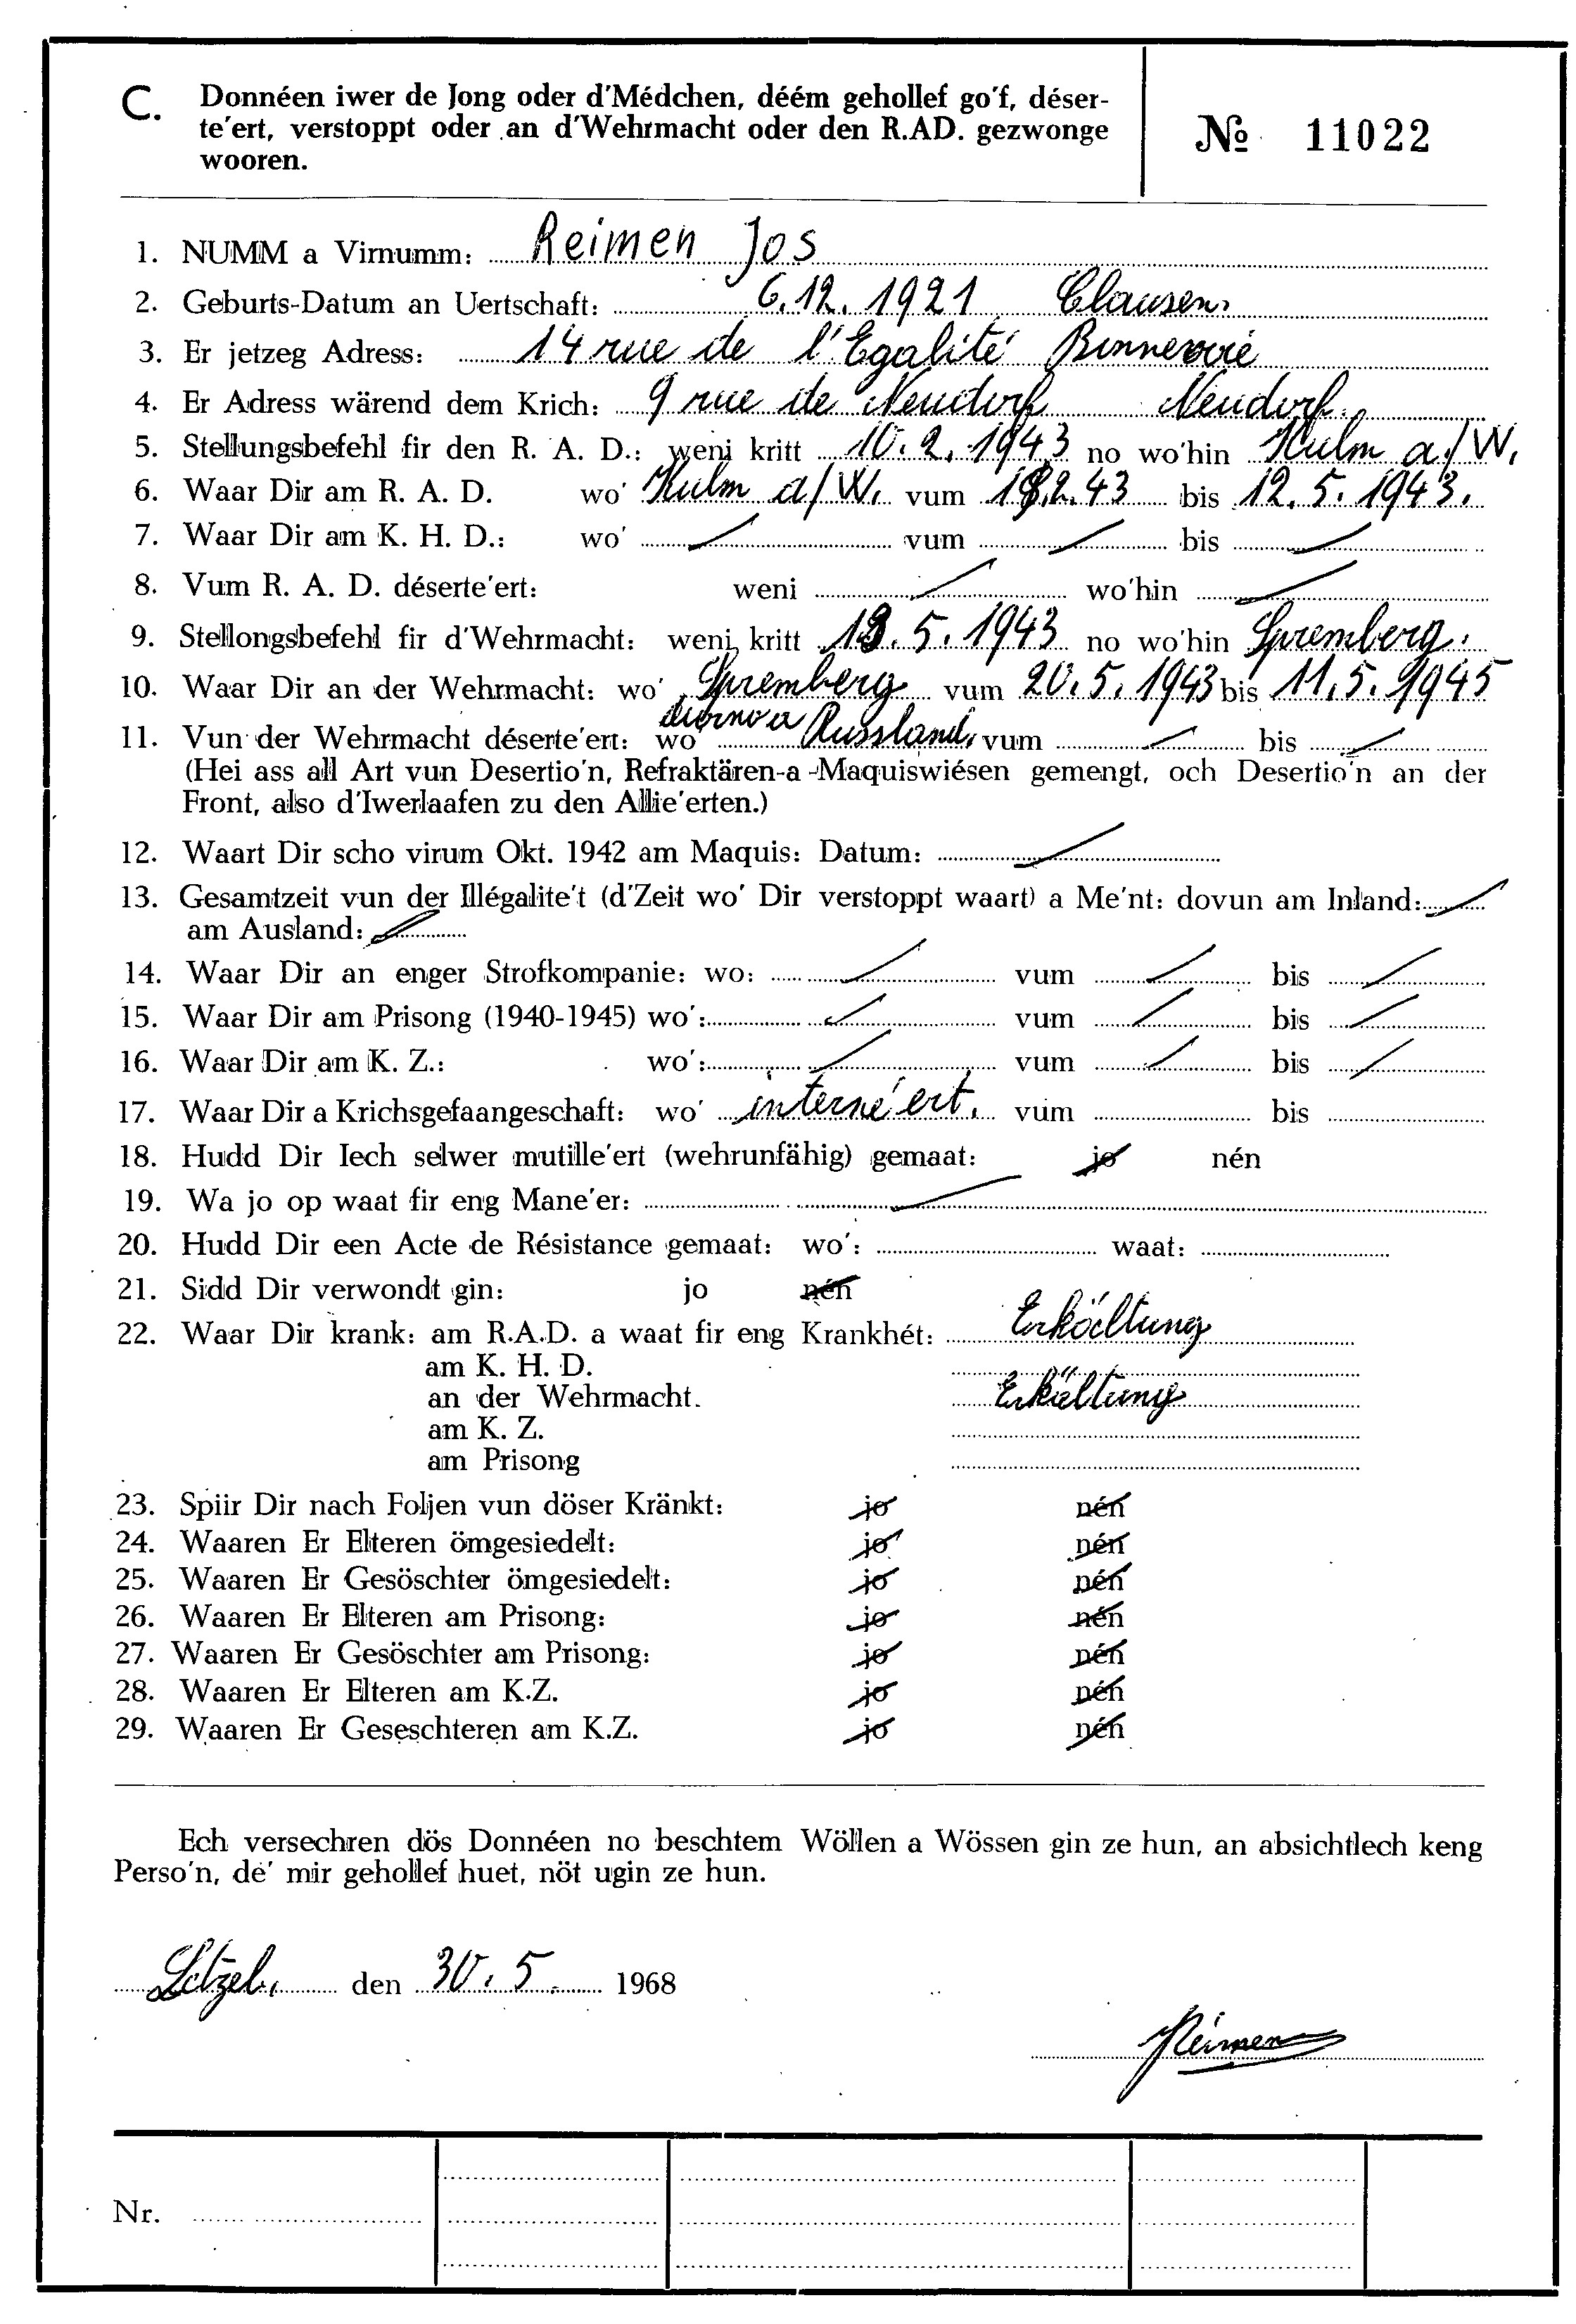 C. Donnéen iwer de Jong oder d'Médchen, déém gehollef go'f, déser-
te'ert, verstoppt oder an d'Wehrmacht oder den R.AD. gezwonge
wooren.
№ 11022
1. NUMM a Virnumm: Reimen Jos
2. Geburts-Datum an Uertschaft: 6.12.1921 Clausen.
3. Er jetzeg Adress: 14 rue de l'Egalité
4. Er Adress wärend dem Krich: 9 rue de Neudorf Neudorf.
5. Stellungsbefehl fir den R. A. D.: weni kritt 10.2.1943 no wo'hin Kulm a./W.
6. Waar Dir am R. A. D. wo' Kulm a/W. vum .2.43 bis 12.5.1943.
7. Waar Dir am K. H. D.: wo' vum bis
8. Vum R. A. D. déserte'ert: weni wo'hin
9. Stellongsbefehl fir d'Wehrmacht: weni kritt .5.1943 no wo'hin Spremberg.
10. Waar Dir an der Wehrmacht: wo' Spremberg vum 20.5.1943 bis 11.5.1945
11. Vun der Wehrmacht déserte'ert: wo' Russland, vum bis
(Hei ass all Art vun Desertio'n, Refraktären-a-Maquiswiésen gemengt, och Desertio'n an der
Front, also d'Iwerlaafen zu den Allie'erten.)
12. Waart Dir scho virum Okt. 1942 am Maquis: Datum:
13. Gesamtzeit vun der Illégalite't (d'Zeit wo' Dir verstoppt waart) a Me'nt: dovun am Inland:
am Ausland:
14. Waar Dir an enger Strofkompanie: wo: vum bis
15. Waar Dir am Prisong (1940-1945) wo': vum bis
16. Waar Dir am K. Z.: wo': vum bis
17. Waar Dir a Krichsgefaangeschaft: wo' interné'ert. vum bis
18. Hudd Dir Iech selwer mutille'ert (wehrunfähig) gemaat: jo nén
19. Wa jo op waat fir eng Mane'er:
20. Hudd Dir een Acte de Résistance gemaat: wo': waat:
21. Sidd Dir verwondt gin: jo nén
22. Waar Dir krank: am R.A.D. a waat fir eng Krankhét: Erköltung
am K. H. D.
an der Wehrmacht. Erkältung
am K. Z.
am Prisong
23. Spiir Dir nach Foljen vun döser Kränkt: jo nén
24. Waaren Er Elteren ömgesiedelt: jo nén
25. Waaren Er Gesöschter ömgesiedelt: jo nén
26. Waaren Er Elteren am Prisong: jo nén
27. Waaren Er Gesöschter am Prisong: jo nén
28. Waaren Er Elteren am K.Z. jo nén
29. Waaren Er Geseschteren am K.Z. jo nén
Ech versechren dös Donnéen no beschtem Wöllen a Wössen gin ze hun, an absichtlech keng
Perso'n, de' mir gehollef huet, nöt ugin ze hun.
Letzeb. den 30.5. 1968
Reimen
Nr.